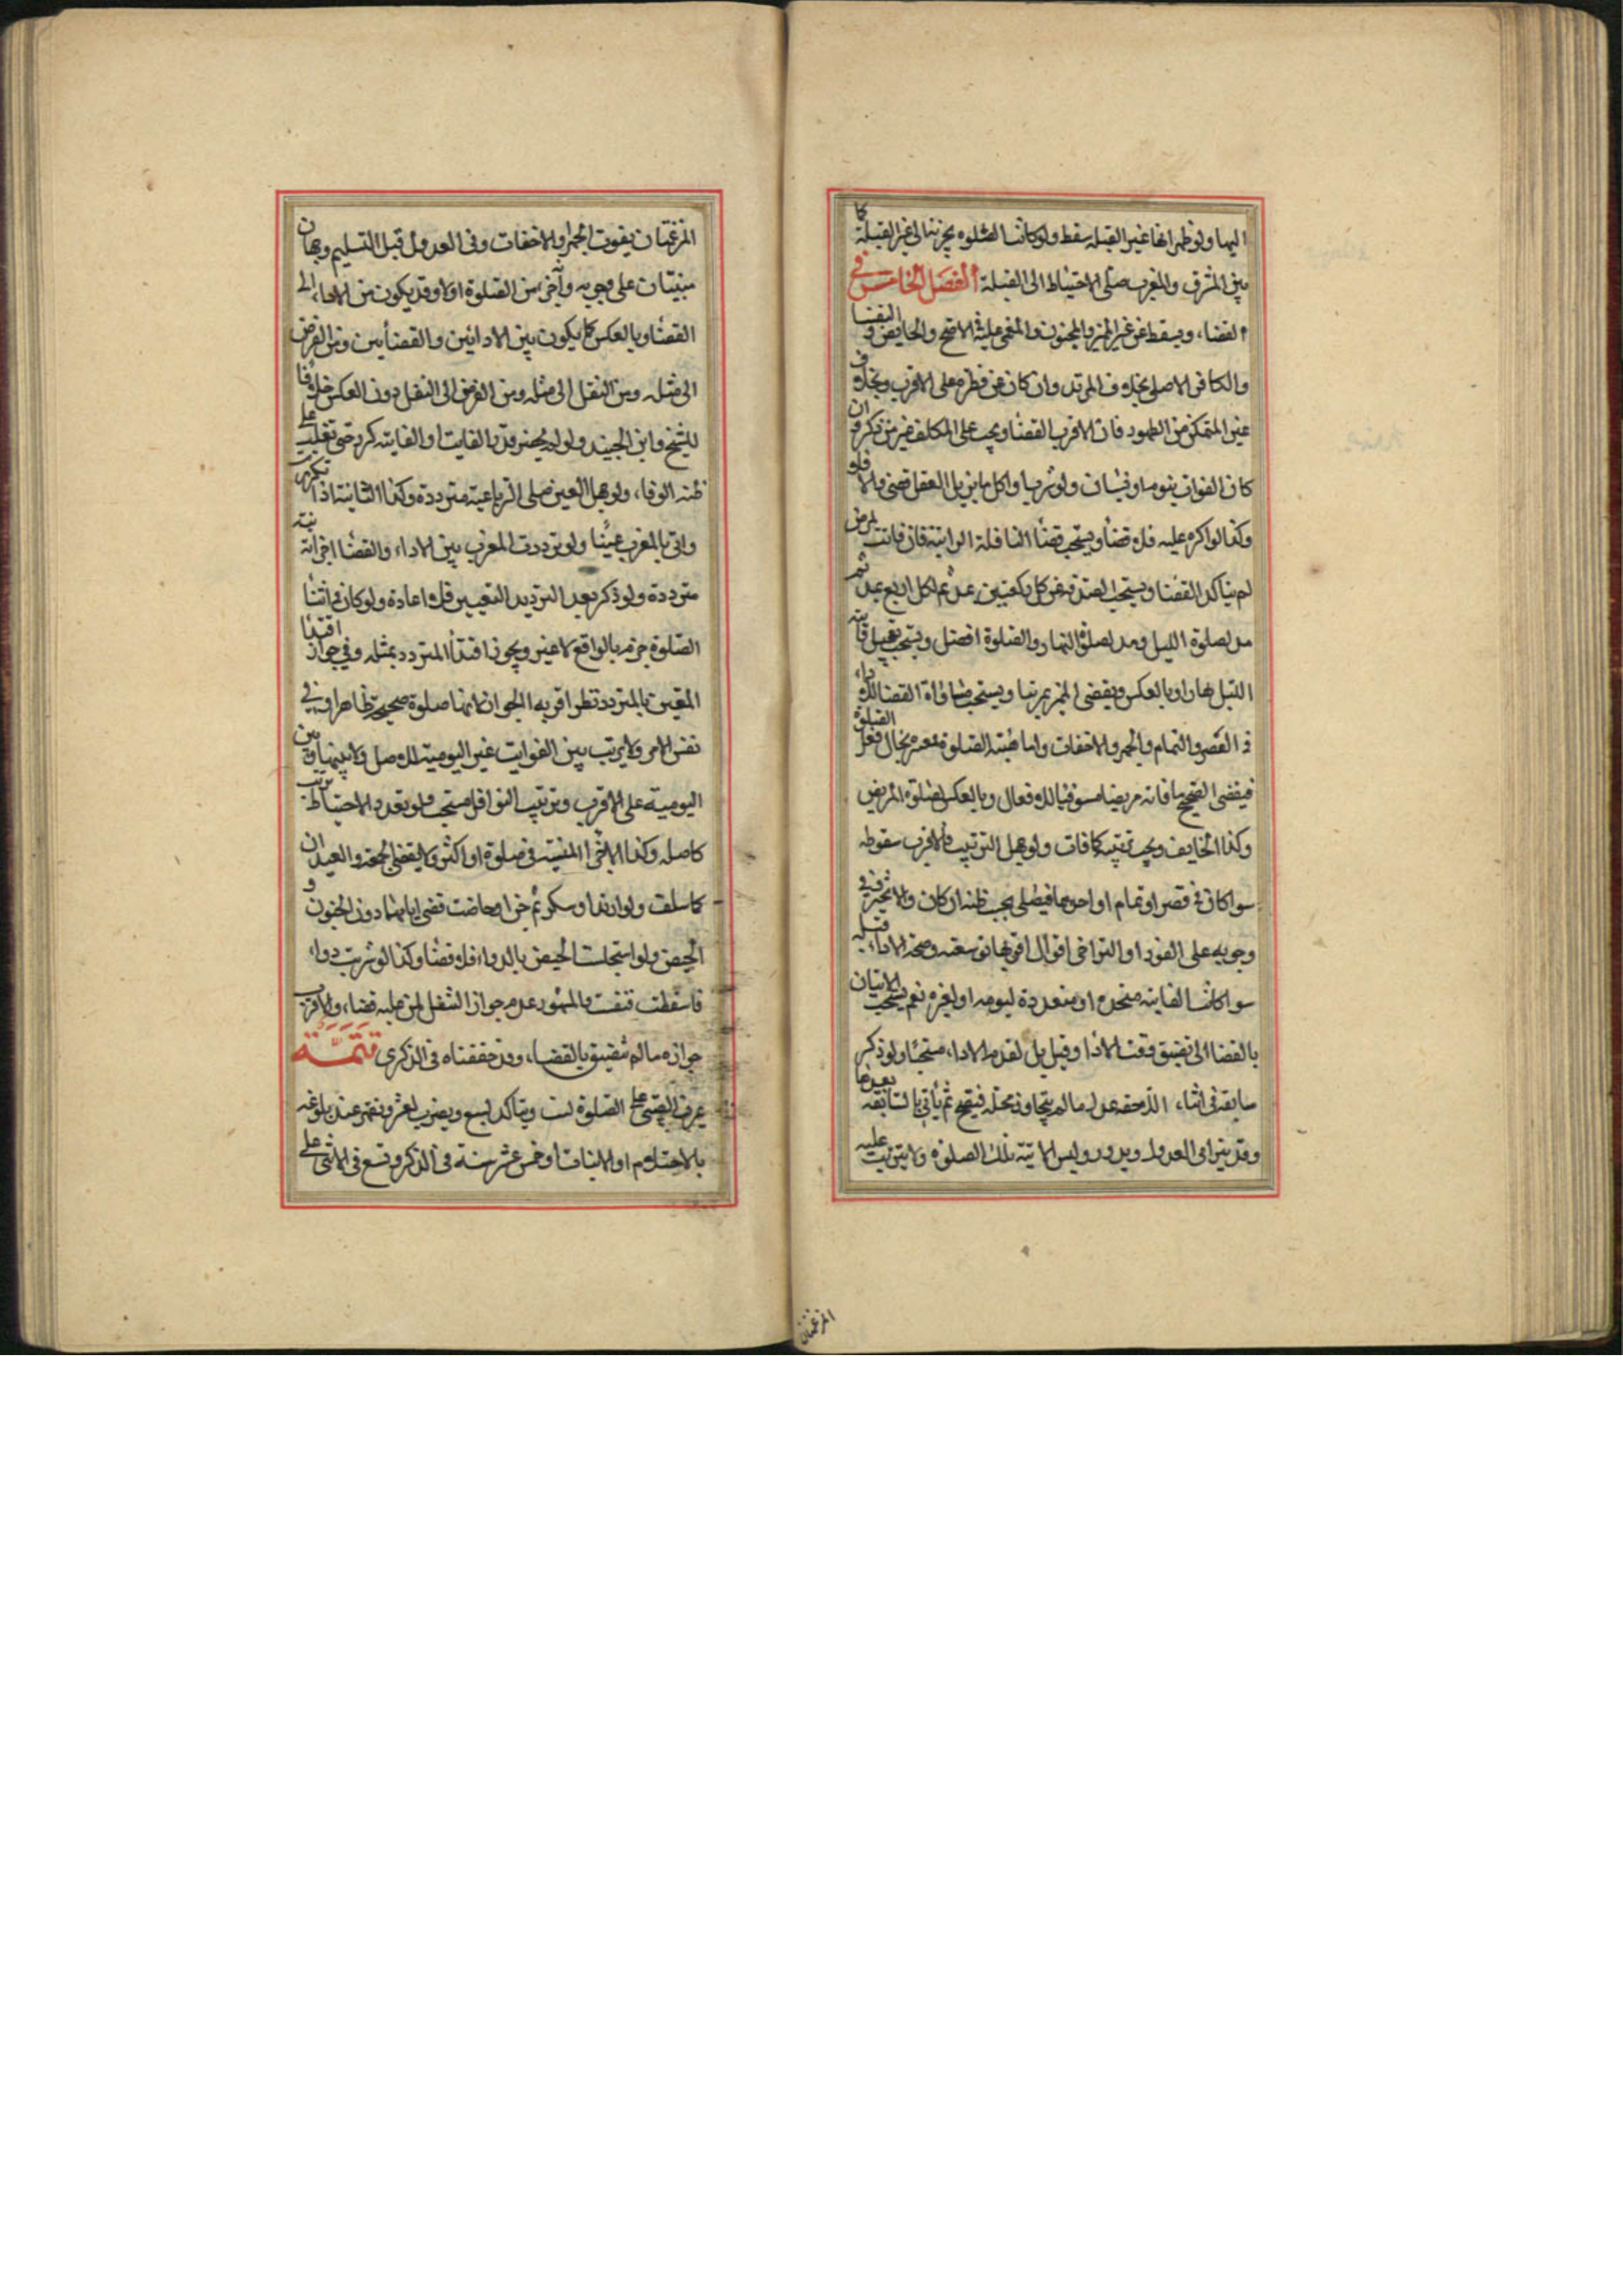 اليها ولو ظهر انها غير القبلة سقط ولو كانت الصلوة يجزيها الى غير القبلة كا
بين المشرق والمغرب صلى الاحتياط الى القبلة الفصل الخامس في
القضاء ويسقط عن غير المميز والمجنون والمغمى عليه في الاصح والحايض و النفسا
والكافر الاصلي بخلاف المرتد وان كان عن فطرة على الاقرب وبخلاف
غير المتمكن من الطهور فان الاقرب القضا ويجب على المكلف من ذكر و ان
كان الفوات بنوم او نسيان ولو شربها واكل ما يزيل العقل قضى والا فلو
وكذا لو اكره عليه فلا قضا ويستحب قضا النافلة الراتبة فان فاتت لمرض
لم يتاكد القضا ويستحب الصدقة عن كل ركعتين بمد ثم لكل اربع بمد ثم
مد لصلوة الليل ومد لصلوة النهار والصلوة افضل ويستحب تعجيل فايتة
الليل نهارا وبالعكس ويقضي المميز تمرينا ويستحب مساواة القضا للاداء
في القصر والتمام والجهر والاخفات واما هيئة الصلوة فمعتبرة بحال فعل الصلوة
فيقضي الصحيح ما فاته مريضا مستوفيا للافعال وبالعكس لصلوة المريض
وكذا الخايف ويجب ترتيبه كما فات ولو جهل الترتيب فالاقرب سقوطه
سوا كان في قصر او تمام او احدهما فيصلي بحسب ظنه ان كان والا تخير وفي
وجوبه على الفور او التراخي اقوال اقربها توسعته وصحة الاداء قبله
سوا كانت الفايتة متحدة او متعددة ليومه او لغيره نعم يستحب الاتيان
بالقضا الى تضيق وقت الادا وقيل بل تقديم الاداء مستحبا ولو ذكر
سابقة في اثناء اللاحقة عدل ما لم يتجاوز محله فيتم ثم يأتي بالسابقة بعدها
وقد يترامى العدول ويدور وليس الا نية تلك الصلوة ولا يترتب عليه
المرغبتان
المرغبتان بفوت الجهر والاخفات وفي العدول قبل التسليم وجهان
مبنيتان على وجوبه وآخر من الصلوة اولا وقد يكون من الاداء الى
القضا وبالعكس كما يكون بين الادائين والقضائين ومن الفرض
الى مثله ومن النفل الى مثله ومن الفرض الى النفل دون العكس خلافا
للشيخ وابن الجنيد ولو لم يحضر قدر الفايت او الفايتة كرر حتى تغلب على
ظنه الوفاء ولو جهل العين صلى الرباعية مترددة وكذا الثانيتا اذا تكررت
واتى بالمغرب عينا ولو ترددت المغرب بين الاداء والقضا اجزأته نية
مترددة ولو ذكر بعد الترديد التعيين فلا اعادة ولو كان في اثنا
الصلوة جزم بالواقع لا غير ويجوز اقتدا المتردد بمثله وفي جواز اقتدا
المتعين بالمتردد نظر اقربه الجواز لانها صلوة صحيحة ظاهرا وفي
نفس الامر ولا يرتب بين الفوايت غير اليومية للاصل ولا بينها وبين
اليومية على الاقرب وترتيب النوافل مستحب ولو تعدد الاحتياط ترتب
كاصله وكذا الاجزا المنسية في صلوة او اكثر ولا يقضى الجمعة والعيدان
كما سلف ولو ارتد او سكر ثم جن او حاضت قضى ايامهما دون الجنون و
الحيض ولو استجلبت الحيض بالدواء فلا قضا وكذا لو شربت دواء
فاسقطت فنفست والمشهور عدم جواز التنفل لمن عليه قضاء والاقرب
جوازه ما لم تضيق بالقضاء وقد حققناه في الذكرى تتمة
يمرن الصبي على الصلوة لست ويتاكد لسبع ويضرب لعشر ونقهر عند بلوغه
بالاحتلام او الانبات او خمس عشر سنة في الذكر وتسع في الانثى على